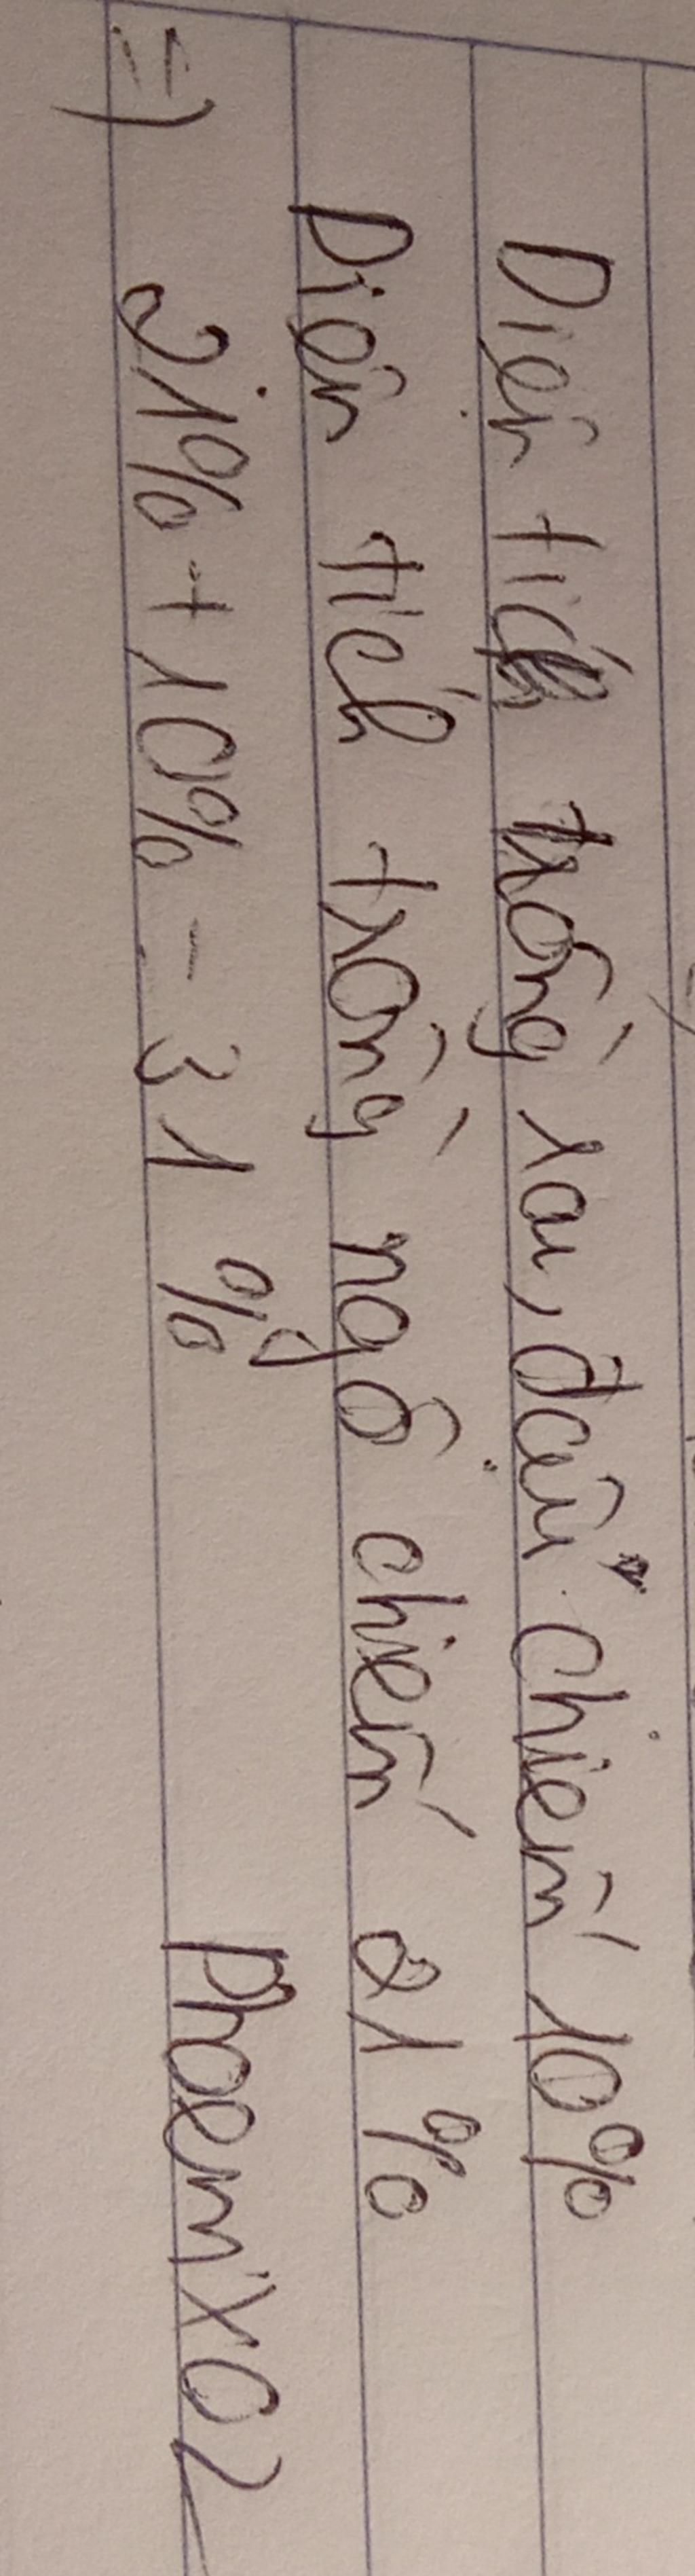 Diện tích trồng rau, đậu chiếm 10%
Diện tích trồng ngô chiếm 21%
=) 21% + 10% = 31%
Phoenix02